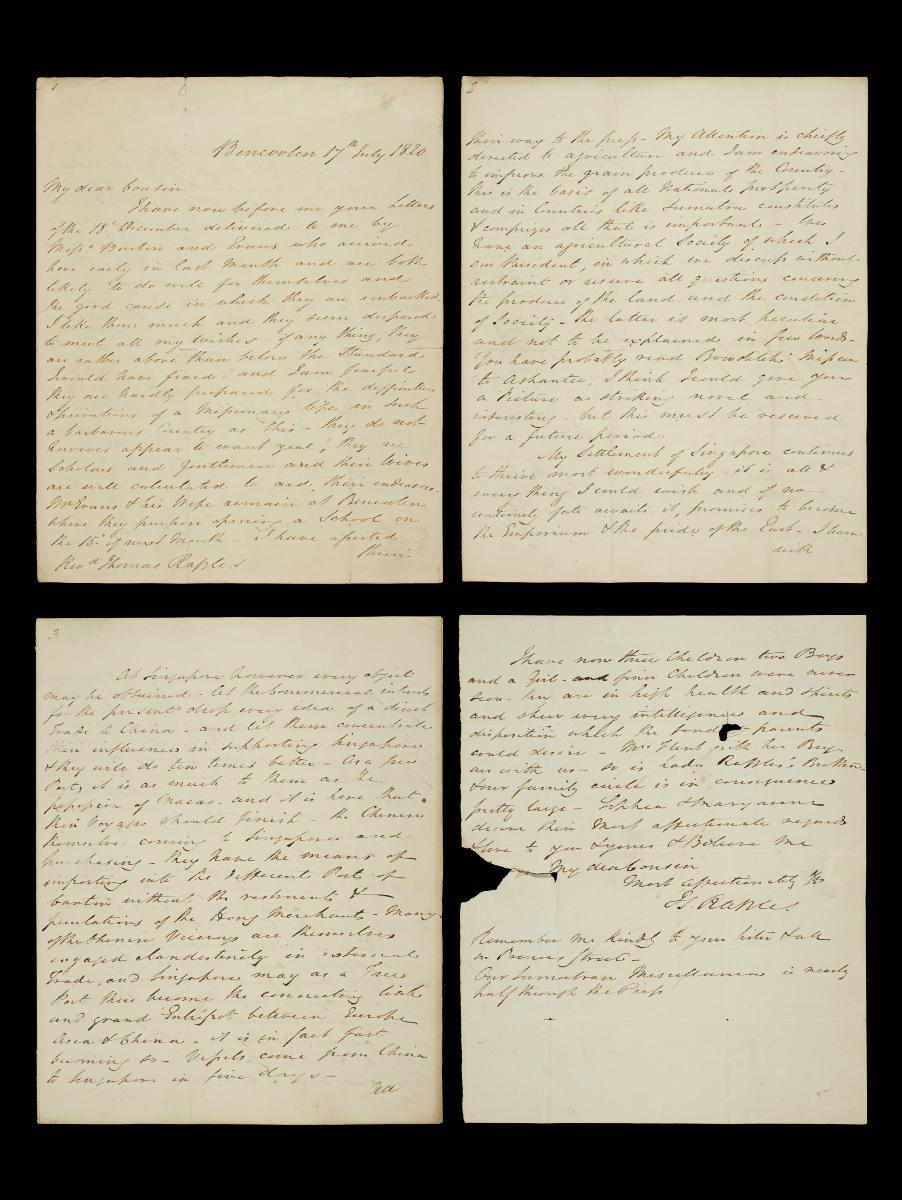 1
Bencoolen 17th July 1820
My dear Cousin
I have now before me your Letters
of the 18th December delivered to me by
Messrs Burton and Evans who arrived
here early in last Month and are both
likely to do well for themselves and
the good cause in which they are embarked.
I like them much and they seem disposed
to meet all my wishes - if any thing, they
are rather above than below the Standard
I would have fixed - and I am fearful
they are hardly prepared for the difficulties
& privations of a Missionary life in such
a barbarous Country as this - they do not
however appear to want zeal, they are
Scholars and Gentlemen and their Wives
are well calculated to aid their endeavours.
Mr Evans & his Wife remain at Bencoolen
where they purpose opening a School on
the 15t of next Month - I have
their
Revd Thomas Raffles
2
their way to the press - My Attention is chiefly
directed to agriculture and I am endeavoring
to improve the grain produce of the Country -
this is the basis of all National prosperity
and in Countries like Sumatra constitutes
& comprizes all that is important - We
have an agricultural Society of which I
am President, in which we discuss without
restraint or reserve all questions concerning
the produce of the land and the condition
of Society - the latter is most peculiar
and not to be explained in few words -
You have probably read Bowditch's Mission
to Ashantee, I think I could give you
a Picture as striking novel and
interesting - but this must be reserved
for a future period
My Settlement of Singapore continues
to thrive most wonderfully - it is all &
every thing I could wish and if no
untimely fate awaits it, promises to become
the Emporium & the pride of the East - I have
with
3
At Singapore however every object
may be obtained - let the Commercial interests
for the present drop every idea of a direct
trade to China - and let them concentrate
their influence in supporting Singapore
& they will do ten times better - As a free
Port, it is as much to them as the
possession of Macao - and it is here that
their Voyages should finish - the Chinese
themselves coming to Singapore and
purchasing - they have the means of
importing into the different Ports of
Canton without the restraints &
peculations of the Hong Merchants - Many
of the Chinese Viceroys are themselves
engaged clandestinely in external
Trade, and Singapore may as a Free
Port thus become the connecting link
and grand Entrepot between Europe
Asia & China - it is in fact fast
becoming so - Vessels come from China
to Singapore in five days -
I have now three Children two Boys
and a Girl - and finer Children were never
seen - they are in high health and spirits
and shew every intelligence and
disposition which the fondest parents
could desire - Mrs Flint with her Boy
are with us - so is Lady Raffles's Brother -
& our family circle is in consequence
pretty large - Sophia & Maryanne
desire their most affectionate regards
& love to you & yours & Believe me
My dear Cousin
Most affectionately Yrs
T.S. Raffles
Remember me kindly to your Sister & all
in Princes Street -
Our Sumatran Miscellanies is nearly
half through the Press